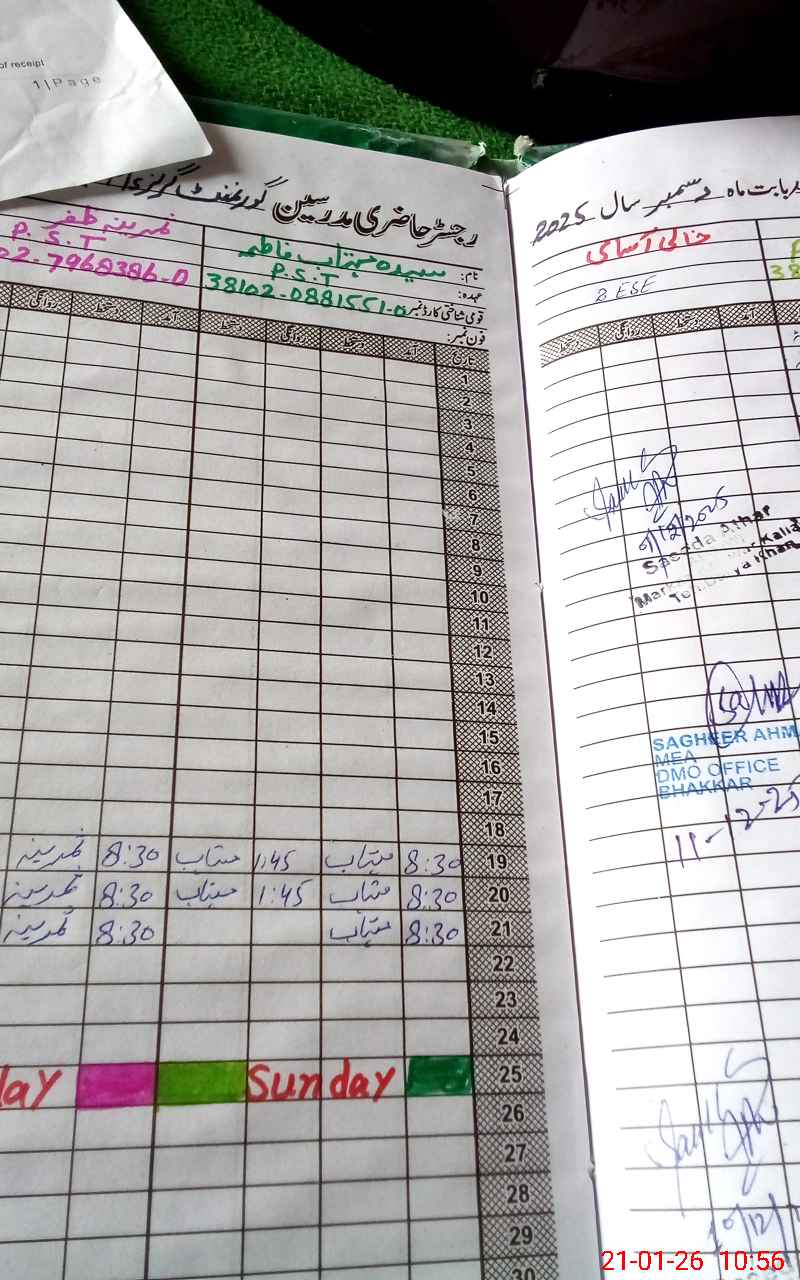 of receipt
1 | Page
رجسٹر حاضری مدرسین گورنمنٹ گرلز
بابت ماہ دسمبر سال 2025
نام: سیدہ مہتاب فاطمہ
ثمرینہ ظفر
عہدہ: P.S.T
P.S.T
قومی شناختی کارڈ نمبر: 38102-0881551-0
02-7968386-0
فون نمبر:
خالی آسامی
8 ESE
38
تاریخ آمد دستخط روانگی دستخط آمد دستخط روانگی
دستخط روانگی دستخط آمد
1
2
3
4
5
6
7
8
9
10
11
12
13
14
15
16
17
18
19 8:30 مہتاب 1:45 مہتاب 8:30 ثمرینہ
20 8:30 مہتاب 1:45 مہتاب 8:30 ثمرینہ
21 8:30 مہتاب 8:30 ثمرینہ
22
23
24
25 Sunday day
26
27
28
29
30
SAGHEER AHM
MEA
DMO OFFICE
BHAKKAR
11-12-25
21-01-26 10:56